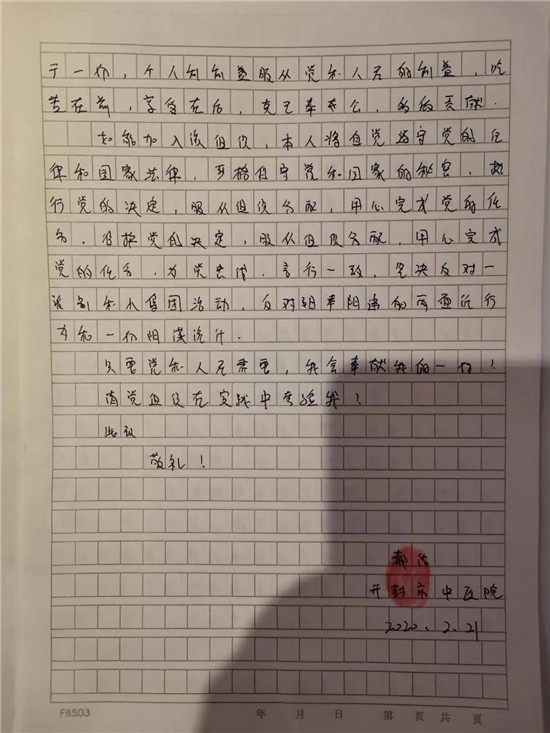 于一切，个人利利益服从党和人民的利益，吃
苦在前，享受在后，克己奉公，多做贡献．
如能加入该组织，本人将自觉遵守党的纪
律和国家法律，严格保守党和国家的秘密．执
行党的决定，服从组织分配，用心完成党的任
务．维护党的决定，服从组织分配，用心完成
党的任务，对党忠诚，言行一致，坚决反对一
派别和小集团活动，反对阳奉阴违的两面派行
为和一切阴谋诡计．
只要党和人民需要，我会奉献我的一切！
请党组织在实践中考验我！
此致
敬礼！
开封市中医院
2020.2.21
F8503
年 月 日 第 页 共 页